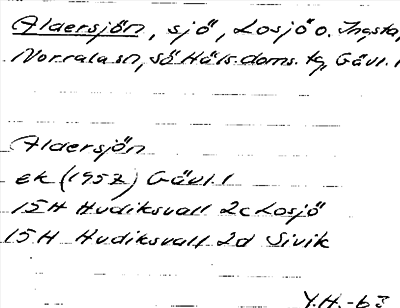 Aldersjön, sjö, Losjö o. Ingsta,
Norrala sn, Sö Häls. doms. tg, Gävl. l
Aldersjön
ek (1957) Gävl. l
15H Hudiksvall 2c Losjö
15H Hudiksvall 2d Sivik
Y.H.-63